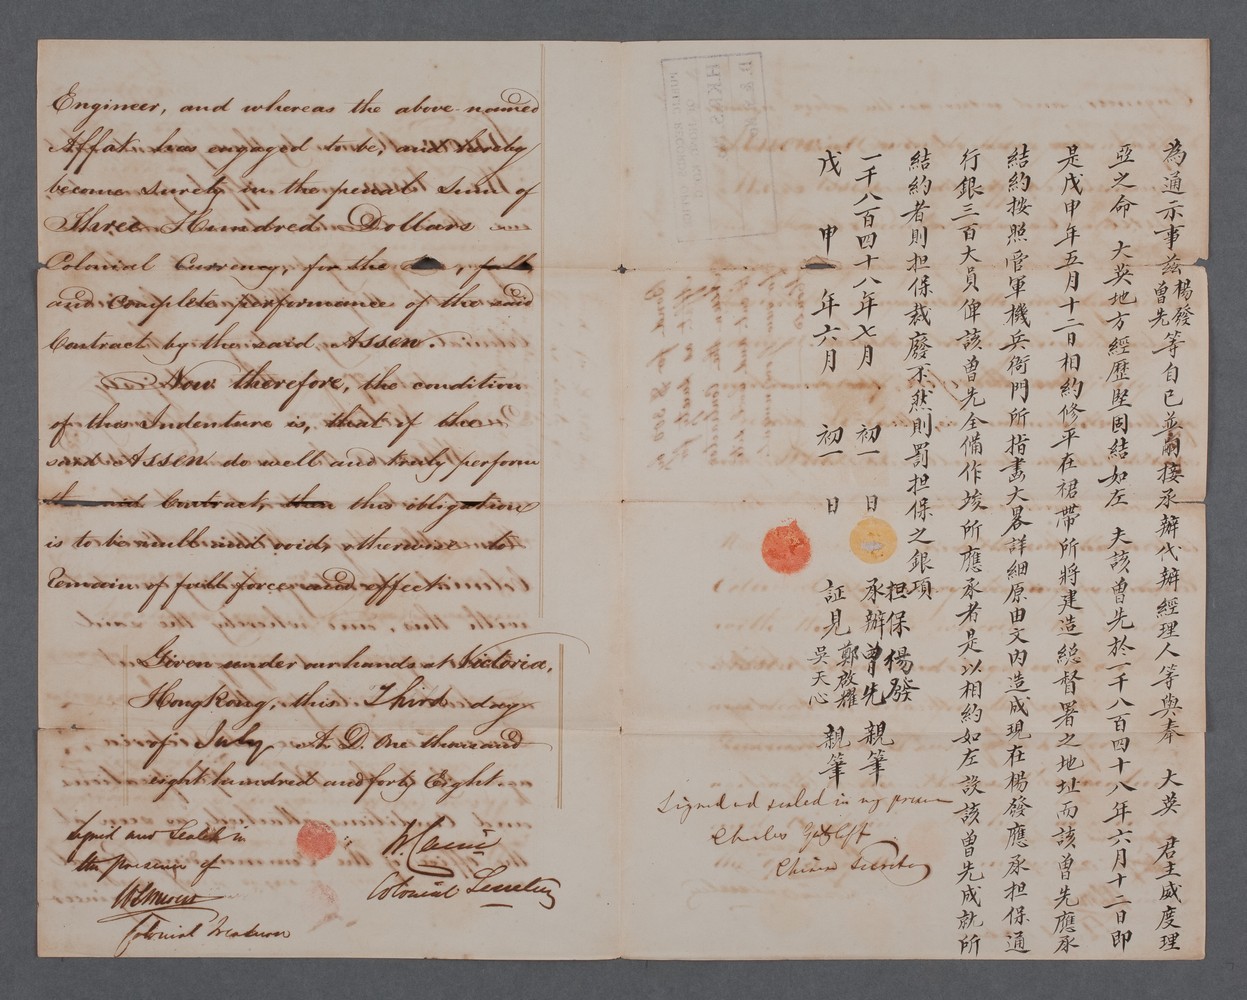 Engineer, and whereas the above named
Affat has engaged to be, and hereby
become surety in the penal Sum of
Three Hundred Dollars
Colonial Currency, for the
and complete performance of the said
Contract by the said Assen.
Now therefore, the condition
of this Indenture is, that if the
said Assen do well and truly perform
the said Contract, then this obligation
is to be null and void, otherwise to
remain of full force and effect.
Given under our hands at Victoria,
Hong Kong, this Third day
of July A. D. One thousand
eight hundred and forty Eight.
Signed and Sealed in
the presence of
Colonial Treasurer
W. Caine
Colonial Secretary
為通示事茲楊發曾先等自已並嗣接承辦代辦經理人等與奉 大英 君主威度理
亞之命 大英地方經歷堅固結如左 夫該曾先於一千八百四十八年六月十二日即
是戊申年五月十二日相約修平在裙帶所將建造總督署之地址而該曾先應承
結約按照官軍機兵衙門所指畫大畧詳細原由文內造成現在楊發應承担保通
行銀三百大員俾該曾先全備作竣所應承者是以相約如左設該曾先成就所
結約者則担保裁廢不然則罰担保之銀項
一千八百四十八年七月 初一 日
戊 申 年六月 初一 日
担保 楊發
承辦曾先 親筆
証見 鄭啟耀 吳天心 親筆
Signed & sealed in my presence
Charles Gutzlaff
Chinese Secretary